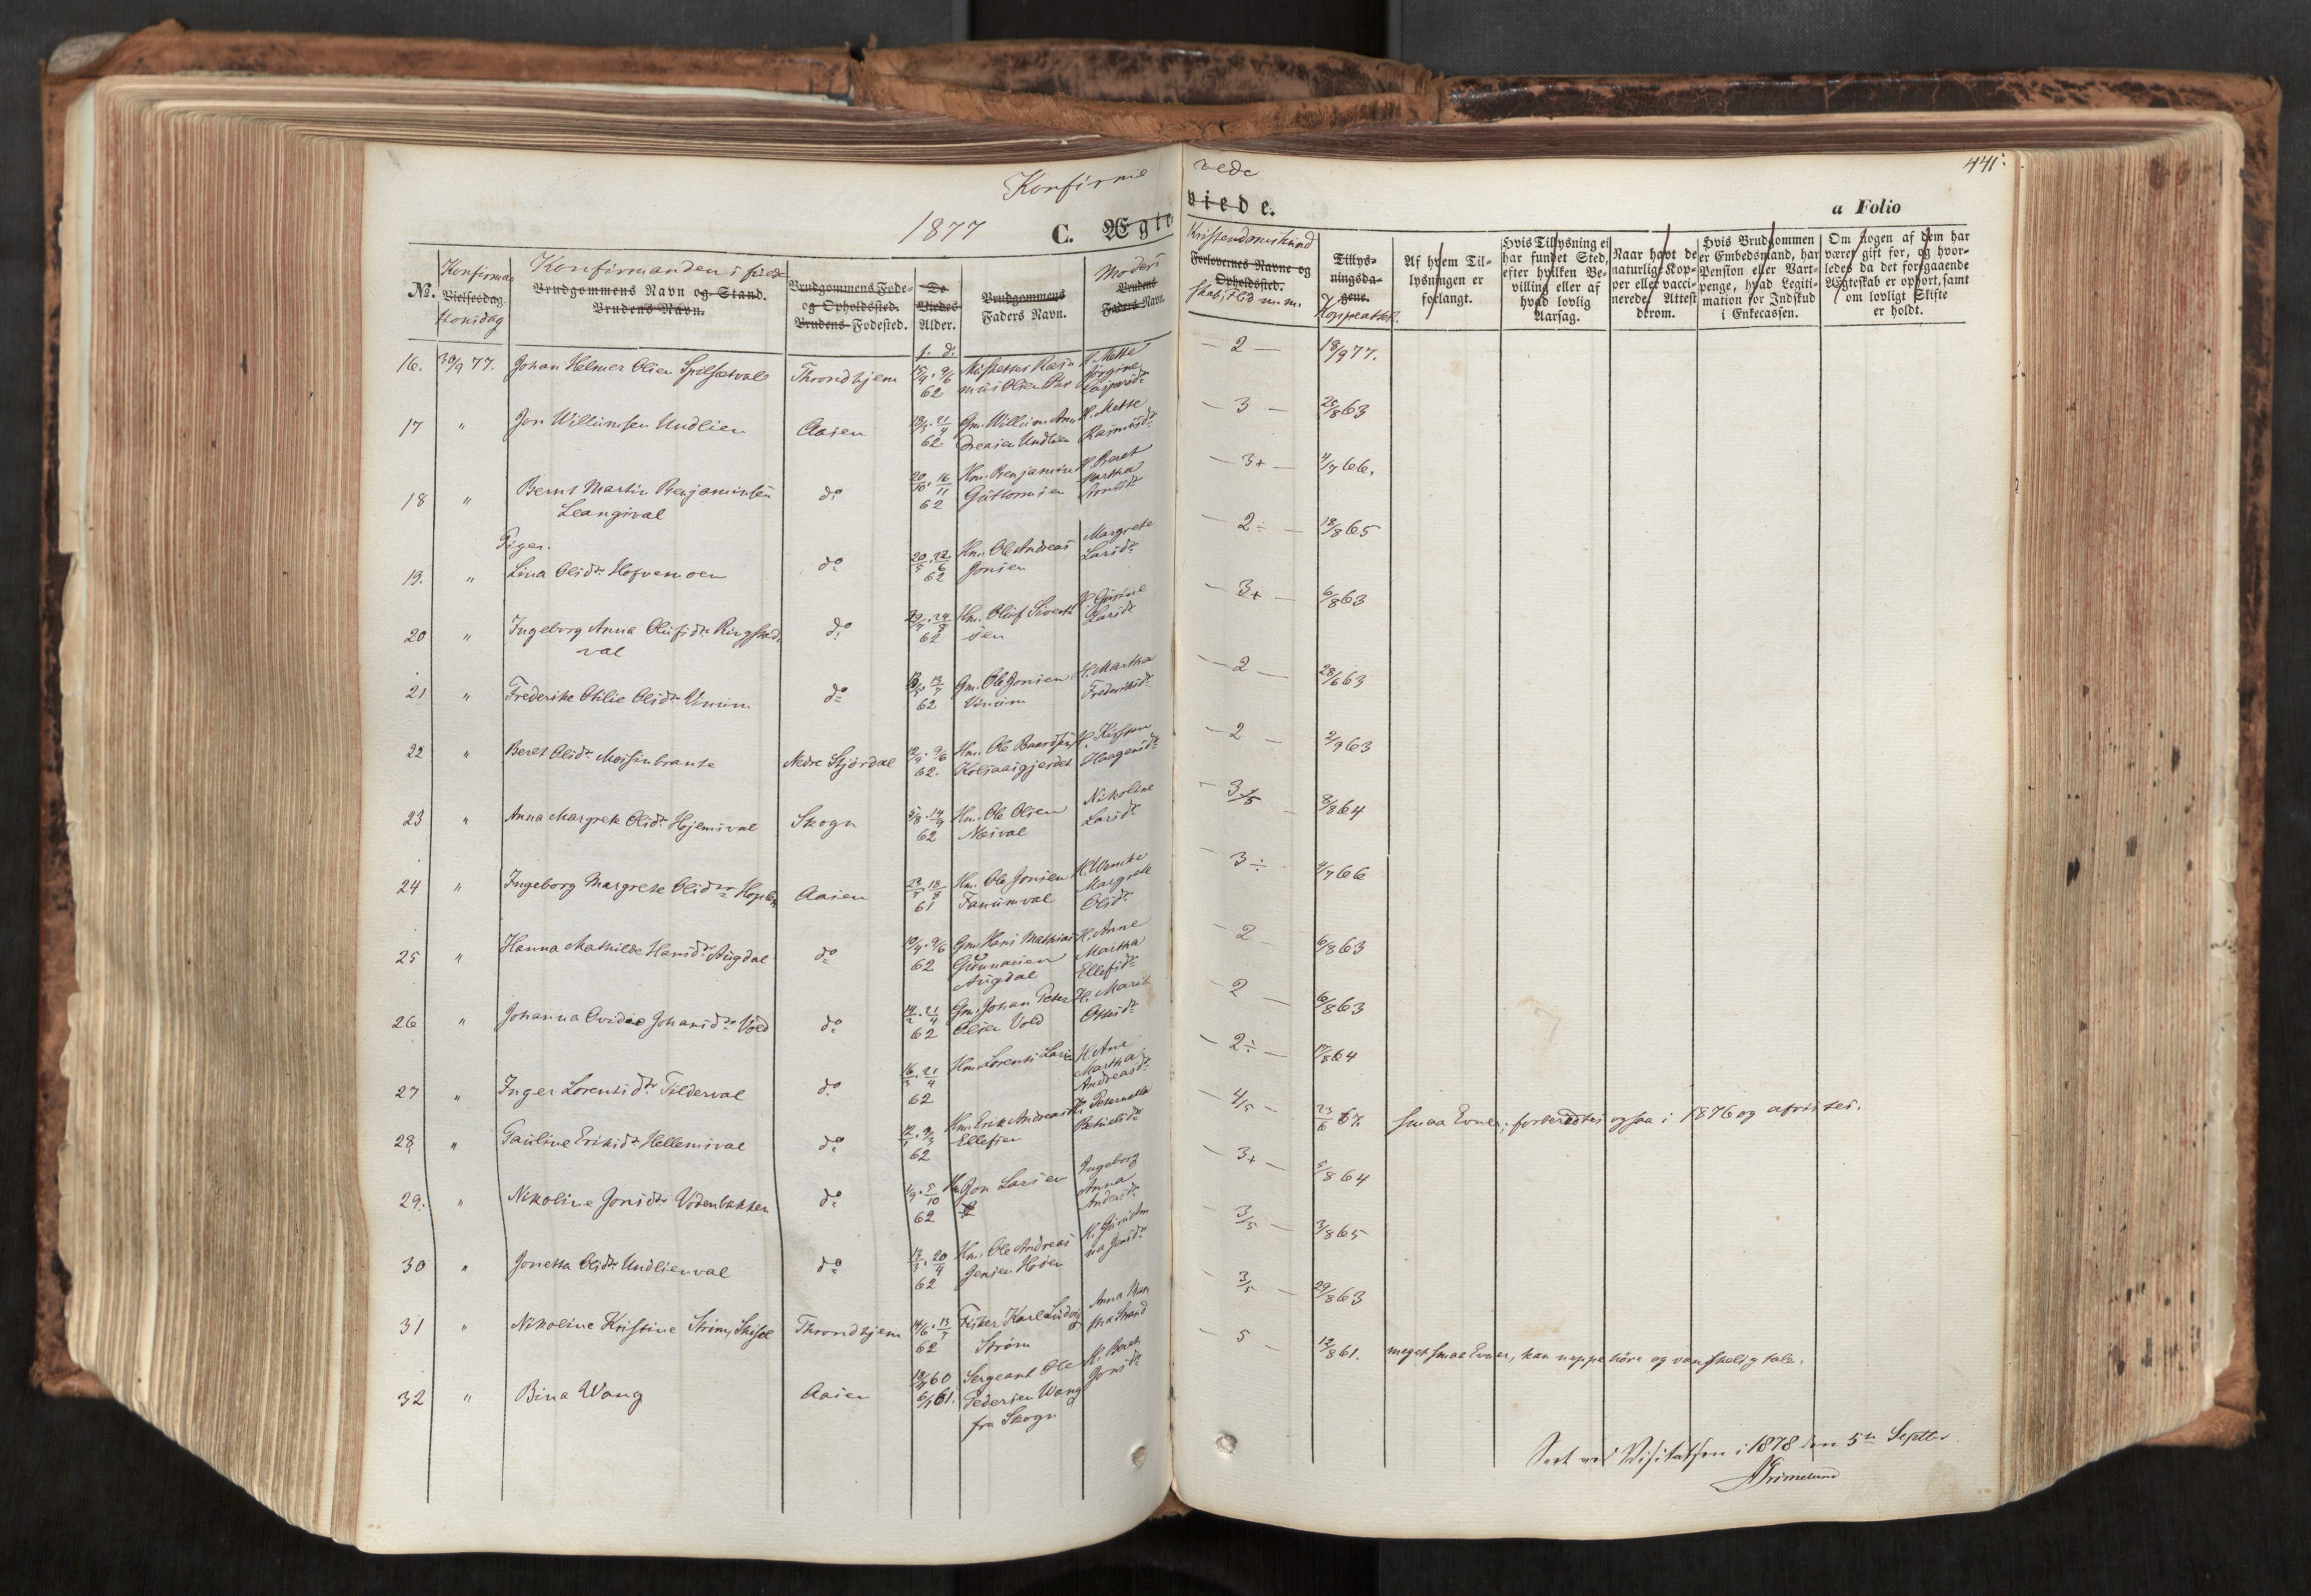 Konfirme rede
441.
1877 C. Ægte viede.
a Folio
No.
Konfirma
Vielsesdag.
Konfirmandens fulde
Brudgommens Navn og Stand.
Brudens Navn.
Brudgommens Føde-
og Opholdssted.
Brudens Fødested.
De
Viedes
Alder.
f. d.
Brudgommens
Faders Navn.
Moders
Brudens
Faders Navn.
Kristendomskund
Forlovernes Navne og
Opholdssted.
skab, Flid m.m.
Tillys-
ningsda-
gene.
Koppeattest.
Af hvem Til-
lysningen er
forlangt.
Hvis Tillysning ei
har fundet Sted,
efter hvilken Be-
villing eller af
hvad lovlig
Aarsag.
Naar havt de
naturlige Kop-
per eller vacci-
nerede. Attest
derom.
Hvis Brudgommen
er Embedsmand, har
Pension eller Vart-
penge, hvad Legiti-
mation for Indskud
i Enkecassen.
Om nogen af dem har
været gift før, og hvor-
ledes da det foregaaende
Ægteskab er ophørt, samt
om lovligt Skifte
er holdt.
16. 30/9 77. Johan Helmer Olsen Throndhjem 15/4. 9/6 62 Olsen H. Mette Jørgine — 2 — 18/9 77.
17 " Jon Willumsen Undlien Aasen 21/4 62 Gm. Willum Andreasen Undlien H. Mette Rasmusdr. — 3 — 25/8 63
18 " Bernt Martin Benjaminsen do 20/10. 16/11 62 Hm. Benjamin Guttormsen H. Beret Martha Arntsdr. — 3+ — 4/7 66.
Leangsval
Piger.
19. " Lina Olsdr. Hofvemoen do 20/5. 22/6 62 Hm. Ole Andreas Jonsen Margrete Larsdr. — 2÷ — 18/8 65
20 " Ingeborg Anna Olufsdr. Ringstad- do 24/8 62 Hm. Oluf Sivert- sen H. Gurine Larsdr. — 3+ — 6/8 63
val
21 " Frederikke Otilie Olsdr. Vinum do 13/7 62 Gm. Ole Jonsen Vinum H. Martha Frederiksdr. — 2 — 28/6 63
22 " Beret Olsdr. Nedre Stjørdal 12/4. 9/6 62. Hm. Ole Baardsen H. Kirsten Haagensdr. — 2 — 2/9 63
23 " Anna Margrete Olsdr. Hjemsval Skogn 5/8. 14/9 62 Hm. Ole Olsen Nesval Nikoline Larsdr. 8/8 64
24 " Ingeborg Margrete Olsdr. Aasen 61 Hm. Ole Jonsen Fanumval H. Margrete Olsdr. — 3÷ 4/7 66
25 " Hanna Mathilde Hansdr. Augdal do 10/4. 9/6 62 Gm. Hans Mathias Gunnarsen Augdal H. Anne Martha Ellefsdr. — 2 — 6/8 63
26 " Johanna Ovidie Johansdr. Vold do 14/2. 21/4 62 Gm. Johan Peter Olsen Vold H. Marit Ottesdr. — 2 — 6/8 63
27 " Inger Lorentsdr. Tilderval do 16/3. 21/4 62 Hm. Lorents Larsen H. Ane Martha Andreasdr. — 2÷ — 17/8 64
28 " Pauline Eriksdr. Hellemsval do 62 Hm. Erik Andreas Ellefsen H. Peternella — 4/5 — 23/6 67. smaa Evner; forberedtes ogsaa i 1876 og afvistes.
29. " Nikoline Jonsdr. Vodenbakken do 5/10 62 Hm. Jon Larsen Ingeborg Anna Andersdr. — 3+ — 5/8 64
30 " Jonetta Olsdr. Undlienval do 13/3. 20/4 62 Hm. Ole Andreas Jensen — 3/5 — 3/8 65
31 " Nikoline Kristine Strøm, Throndhjem 14/6. 13/7 62 Fisker Karl Ludvig Strøm Anna — 3/5 — 29/8 63
32 " Bina Wang Aasen 60 6/1 61. Sergeant Ole Pedersen Wang fra Skogn H. Beret Jonsdr. — 5 — 12/8 61. meget smaa Evner, kan neppe høre og vanskelig tale.
Seet ved Visitatsen i 1878 den 5te Septbr.
AGrimelund